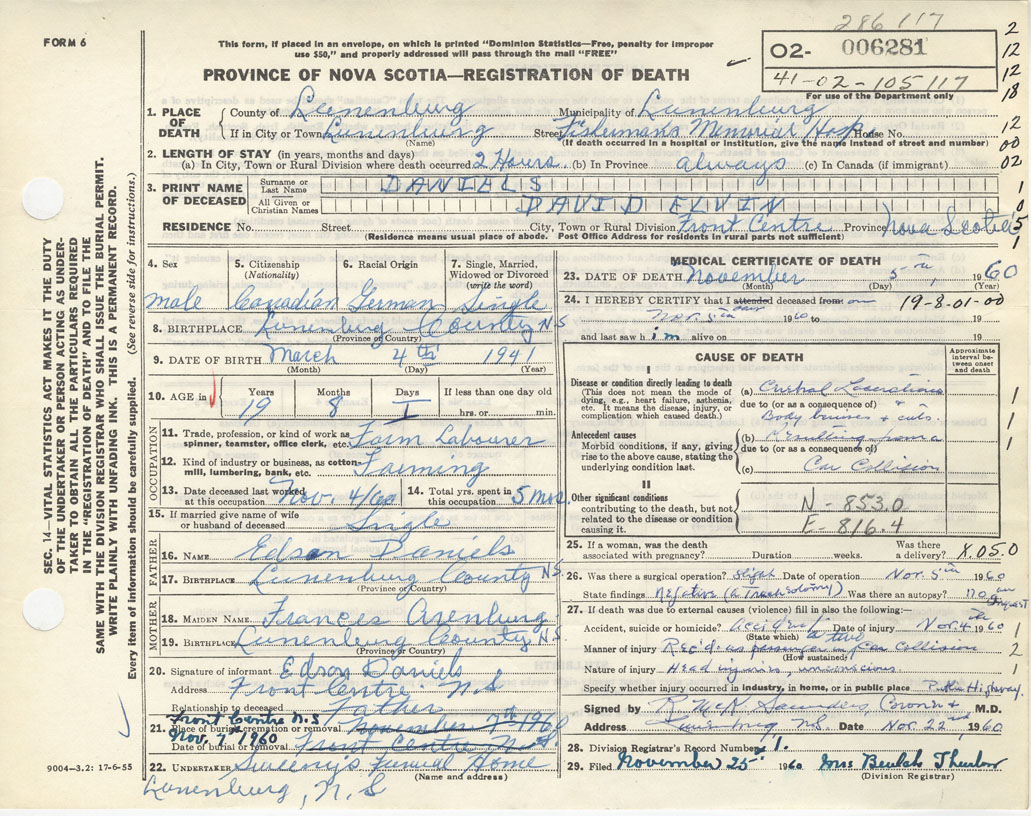 286117
FORM 6
This form, if placed in an envelope, on which is printed "Dominion Statistics—Free, penalty for improper
use $50," and properly addressed will pass through the mail "FREE"
02- 006281
41-02-105117
For use of the Department only
PROVINCE OF NOVA SCOTIA—REGISTRATION OF DEATH
2
12
12
18
12
00
02
1
0
5
1
1. PLACE OF DEATH County of Lunenburg Municipality of Lunenburg
If in City or Town Lunenburg Street Fisherman's Memorial Hosp House No.
(Name) (If death occurred in a hospital or institution, give the name instead of street and number)
2. LENGTH OF STAY (in years, months and days)
(a) In City, Town or Rural Division where death occurred 2 Hours (b) In Province always (c) In Canada (if immigrant)
3. PRINT NAME OF DECEASED Surname or Last Name DANIELS
All Given or Christian Names DAVID ELVIN
RESIDENCE No. Street City, Town or Rural Division Front Centre Province Nova Scotia
(Residence means usual place of abode. Post Office Address for residents in rural parts not sufficient)
4. Sex 5. Citizenship (Nationality) 6. Racial Origin 7. Single, Married, Widowed or Divorced (write the word)
male Canadian German Single
8. BIRTHPLACE Lunenburg County N.S
(Province or Country)
9. DATE OF BIRTH March 4th 1941
(Month) (Day) (Year)
10. AGE in Years Months Days If less than one day old
19 8 1 hrs. or min.
OCCUPATION
11. Trade, profession, or kind of work as spinner, teamster, office clerk, etc. Farm Labourer
12. Kind of industry or business, as cotton-mill, lumbering, bank, etc. Farming
13. Date deceased last worked at this occupation Nov. 4/60 14. Total yrs. spent in this occupation 5 mos.
15. If married give name of wife or husband of deceased Single
FATHER
16. NAME Edson Daniels
17. BIRTHPLACE Lunenburg County N.S.
(Province or Country)
MOTHER
18. MAIDEN NAME Frances Arenburg
19. BIRTHPLACE Lunenburg County N.S
(Province or Country)
20. Signature of informant Edson Daniels
Address Front Centre, N.S
Relationship to deceased Father
Front Centre N.S
21. Place of burial, cremation or removal November 7th 1960
Nov. 7th 1960
Date of burial or removal Front Centre N.S
22. UNDERTAKER Sweeny's Funeral Home
(Name and address)
Lunenburg, N.S
MEDICAL CERTIFICATE OF DEATH
23. DATE OF DEATH November 5th, 1960
(Month) (Day) (Year)
24. I HEREBY CERTIFY that I attended deceased from on 19-8-01-00
Nov. 5th 1960 to 19
and last saw him alive on 19
CAUSE OF DEATH
Approximate interval between onset and death
I
Disease or condition directly leading to death
(This does not mean the mode of dying, e.g., heart failure, asthenia, etc. It means the disease, injury, or complication which caused death.)
(a) Lacerations
due to (or as a consequence of) &
Body bruises & cuts. 1
Antecedent causes
Morbid conditions, if any, giving rise to the above cause, stating the underlying condition last.
(b)
due to (or as a consequence of) 1
(c) Car Collision
1
II
Other significant conditions
contributing to the death, but not related to the disease or condition causing it.
N - 853.0
E - 816.4
25. If a woman, was the death associated with pregnancy? Duration weeks. Was there a delivery? X.05.0
26. Was there a surgical operation? Date of operation Nov. 5th 1960
State findings Negative (a Tracheotomy) Was there an autopsy? no. an Inquest
27. If death was due to external causes (violence) fill in also the following:—
Accident, suicide or homicide? Accident Date of injury Nov. 4th 1960 1
(State which) a two
Manner of injury Rec'd as passenger in car collision 2
(How sustained)
Nature of injury Head injuries, unconscious. 1
Specify whether injury occurred in industry, in home, or in public place Public Highway.
Signed by R. McK Saunders Coroner M.D.
Address Lunenburg N.S. Date Nov. 22nd 1960
28. Division Registrar's Record Number 1.
29. Filed November 25 1960 Mrs Beulah Thurlow
(Division Registrar)
SEC. 14—VITAL STATISTICS ACT MAKES IT THE DUTY
OF THE UNDERTAKER OR PERSON ACTING AS UNDER-
TAKER TO OBTAIN ALL THE PARTICULARS REQUIRED
IN THE "REGISTRATION OF DEATH" AND TO FILE THE
SAME WITH THE DIVISION REGISTRAR WHO SHALL ISSUE THE BURIAL PERMIT.
WRITE PLAINLY WITH UNFADING INK. THIS IS A PERMANENT RECORD.
Every item of information should be carefully supplied. (See reverse side for instructions.)
9004-3.2: 17-6-55